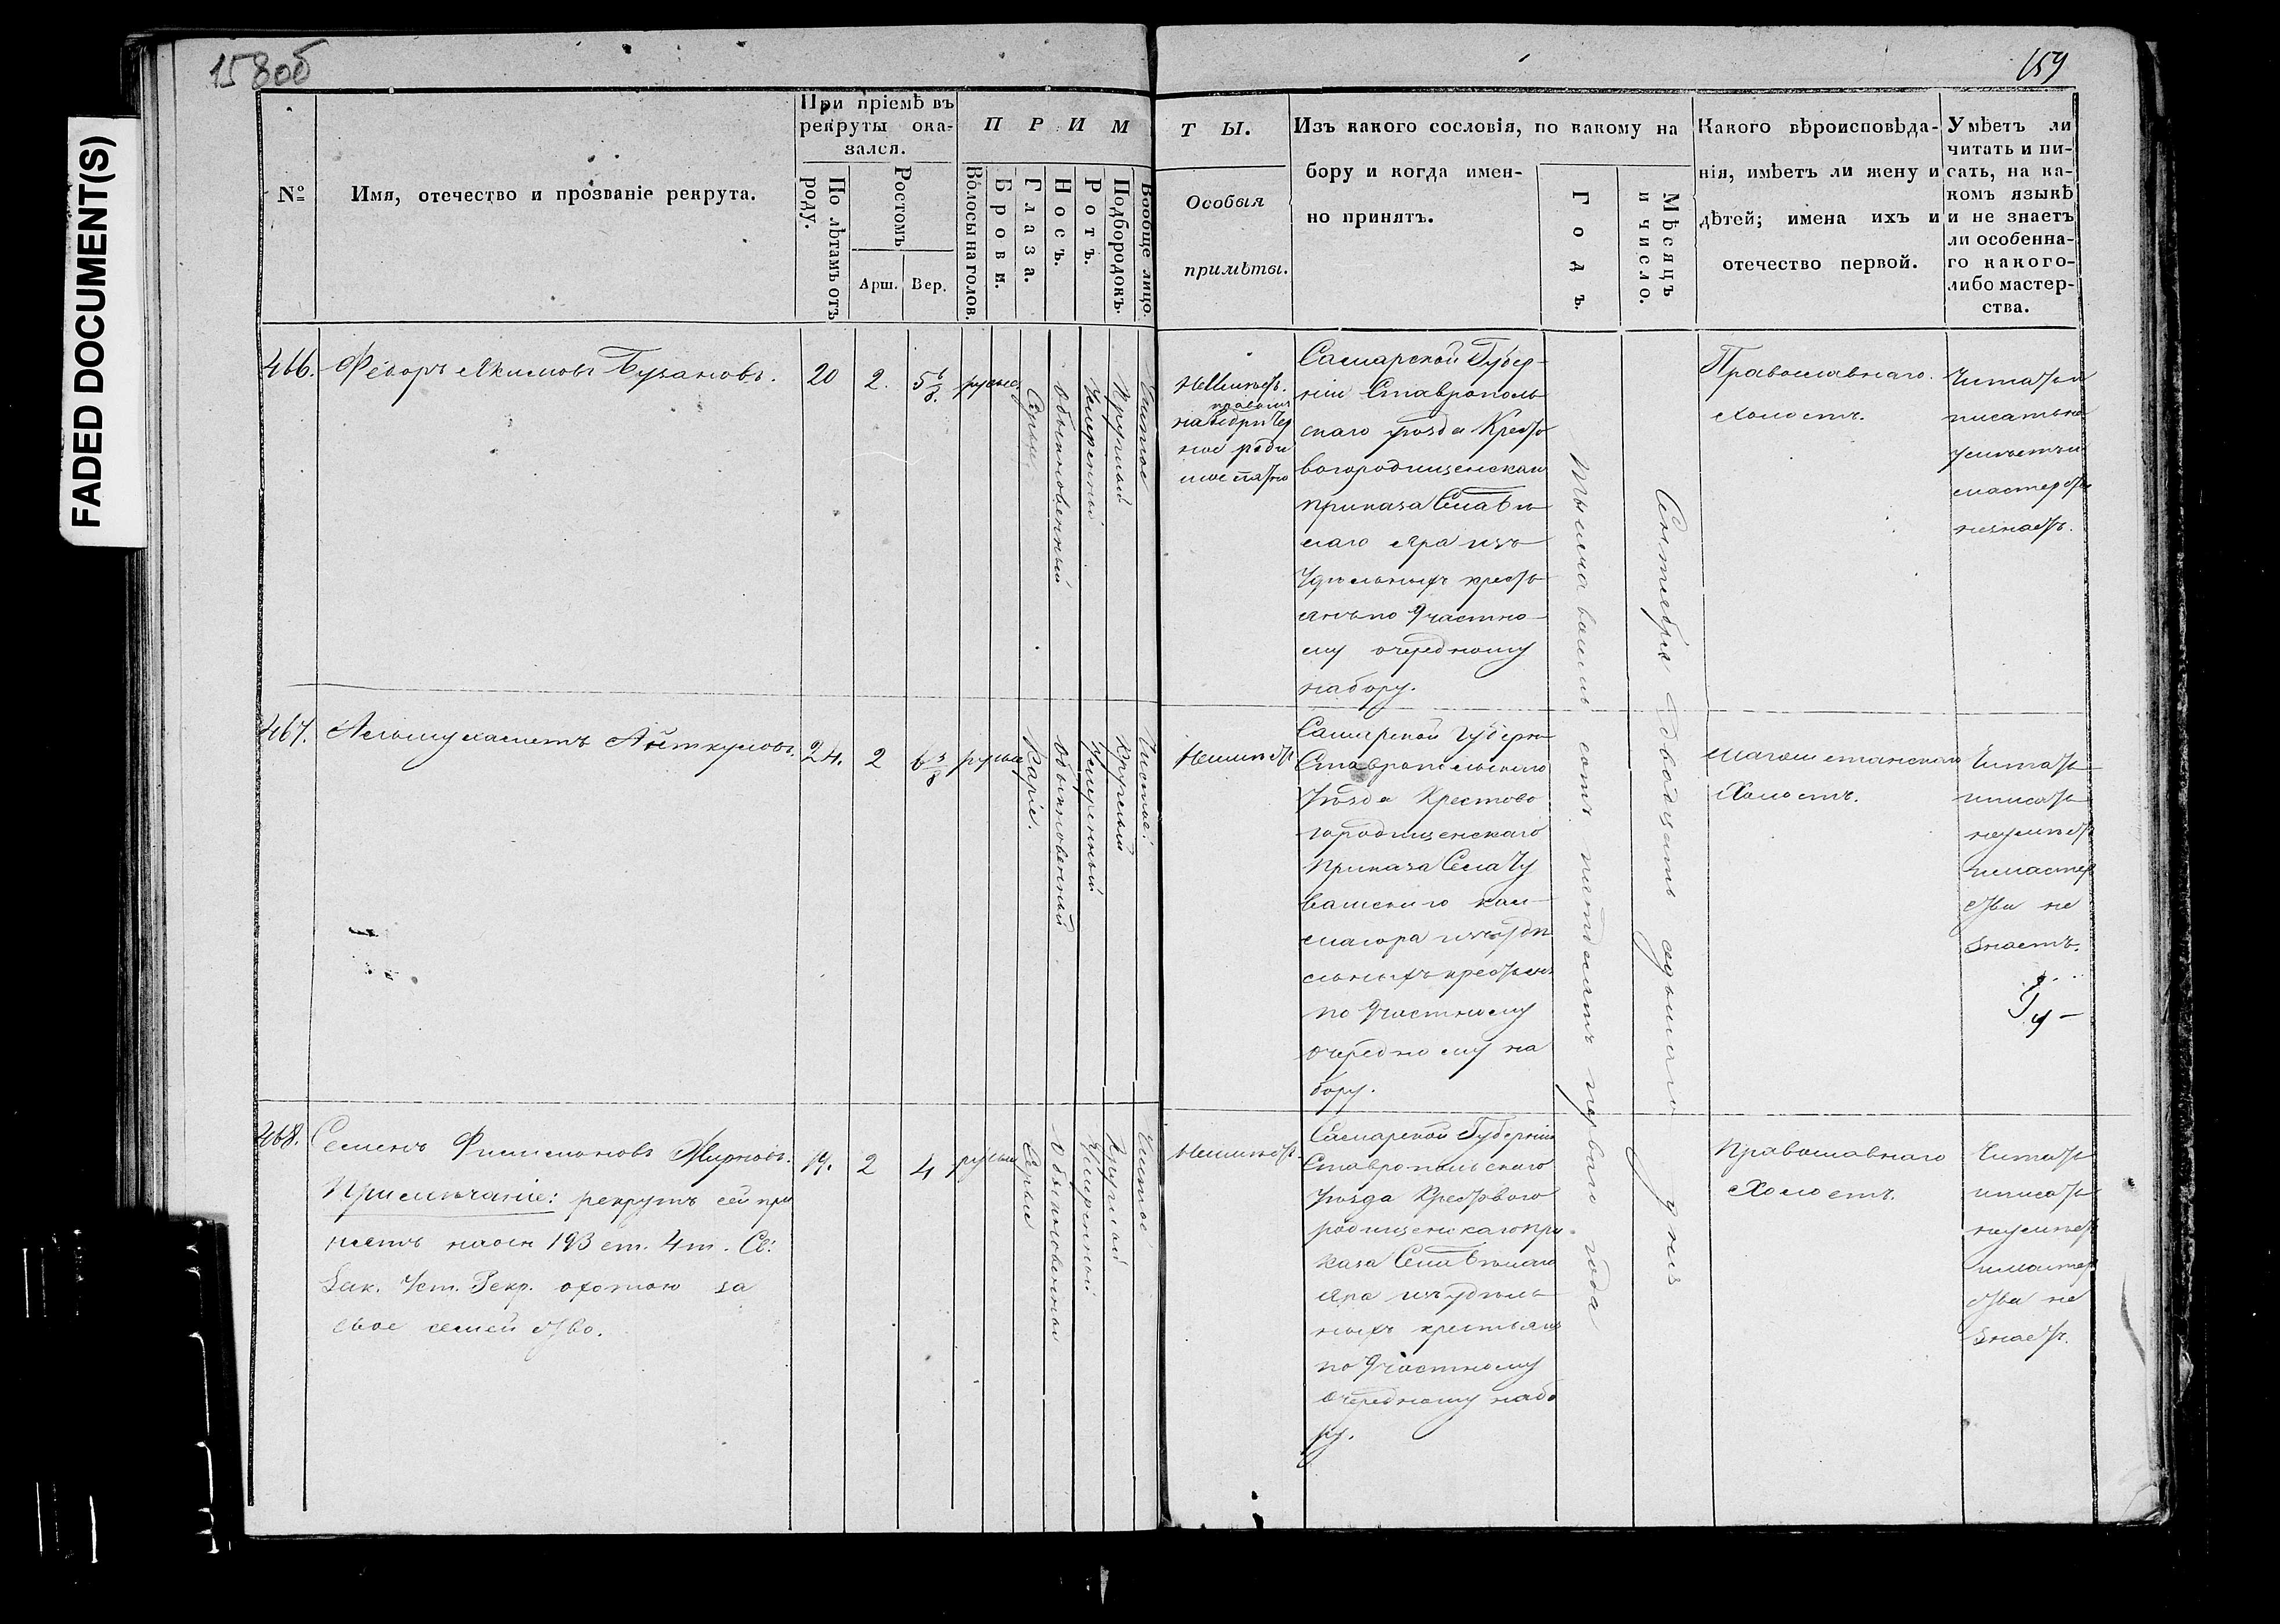 158об
159
FADED DOCUMENT(S)
№
Имя, отечество и прозваніе рекрута.
При пріемѣ въ
рекруты ока-
зался.
По лѣтамъ отъ
роду.
Ростомъ
Арш.
Вер.
ПРИМ
Волосы на голов.
Брови.
Глаза.
Носъ.
Ротъ.
Подбородокъ.
Вообще лицо.
ТЫ.
Особыя
примѣты.
Изъ какого сословія, по какому на
бору и когда имен-
но принятъ.
Годъ.
Мѣсяцъ
и число.
Какого вѣроисповѣда-
нія, имѣетъ ли жену и
дѣтей; имена ихъ и
отечество первой.
Умѣетъ ли
читать и пи-
сать, на ка-
комъ языкѣ
и не знаетъ
ли особенна-
го какого-
либо мастер-
ства.
466.
Федоръ Якимовъ Бузановъ.
20
2.
5 6/8.
русые
Сѣрые
Обыкновенный
Умеренный
Круглый
Чистое
на бедри Чер
ное роди
мое пятно
Самарской Губер-
ніи Ставрополь
скаго уезда Кресто
вогородищенскаго
приказа Села Бѣ
лаго Яра изъ
Удѣльныхъ кресть
янъ по Участко-
му очередному
набору.
Тысяча восемь сотъ пятдесятъ перваго года
Сентября двадцать седьмаго дня
Православнаго.
Холостъ.
Читать и
писать не
умѣетъ и
мастерства
незнаетъ.
467.
Альмухаметъ Айткуловъ.
24.
2
6 3/8
русые
Каріе.
Обыкновенный
Умеренный
Круглый
Чистое.
Неимѣетъ
Самарской Губерн
Ставропольскаго
Уѣзда Крестово
городищенскаго
Приказа Села Чу
вашскаго Кал
маюра изъ Удѣ
льныхъ крестьянъ
по Участкому
очередному на
бору.
Магометанскаго
Холостъ.
Читать
и писать
неумѣетъ
и мастер
ства не
знаетъ.
468.
Семенъ Филимоновъ Жирновъ.
Примѣчаніе: рекрутъ сей при
нятъ на осн 193 ст. 4 т. Св:
Зак. Уст. Рекр. охотою за
свое семейство.
19.
2
4
русые
Сѣрые
Обыкновенный
Умеренный
Круглый
Чистое
Неимѣетъ
Самарской Губерніи
Ставропольскаго
Уѣзда Крестового
родищенскаго при
каза Села Бѣлаго
Яра изъ удѣль
ныхъ крестьянъ
по Участкому
очередному набо
ру.
Православнаго
Холостъ.
Читать
и писать
неумѣетъ
и мастер
ства не
знаетъ.